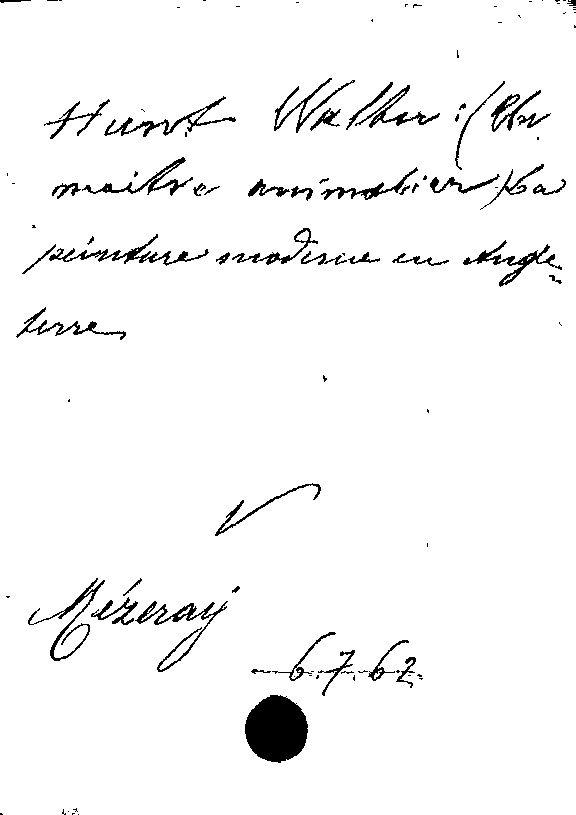 Hunt Walter : (Un
maître animalier) La
peinture moderne en Angle=
terre
Mézeray
6.7.62